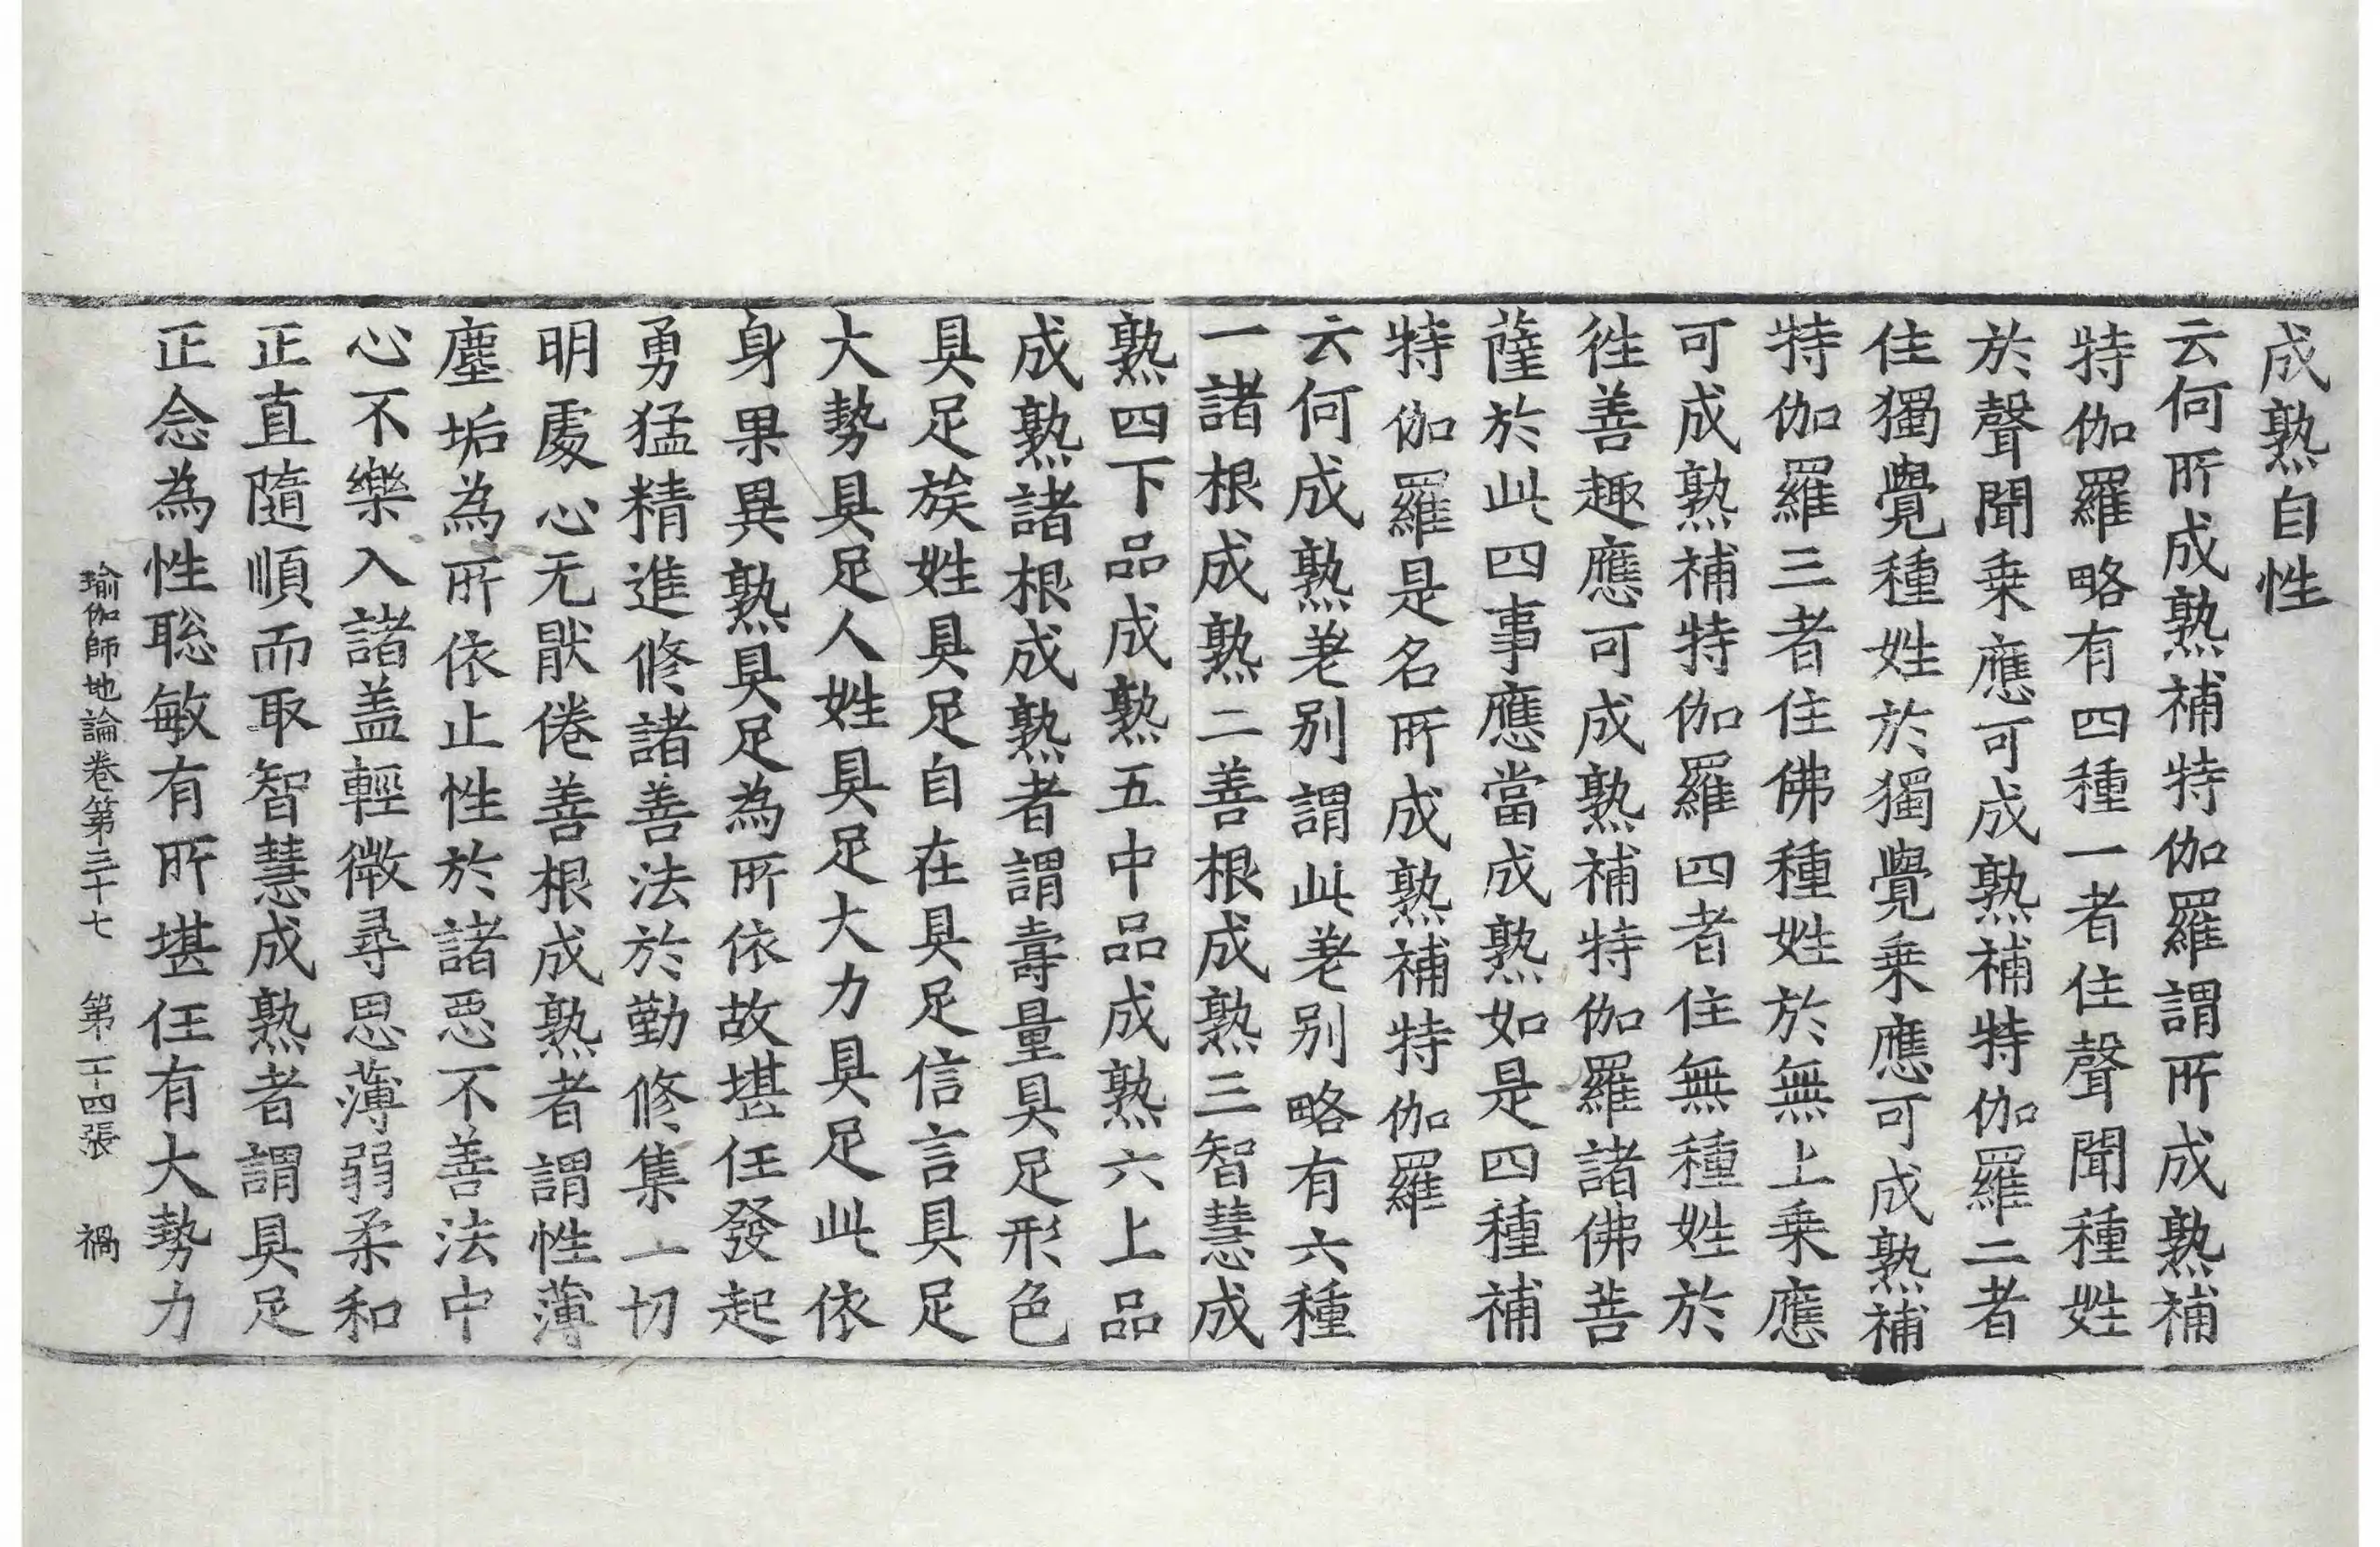 成熟自性
云何所成熟補特伽羅謂所成熟補
特伽羅略有四種一者住聲聞種姓
於聲聞乗應可成熟補特伽羅二者
住獨覺種姓於獨覺乗應可成熟補
特伽羅三者住佛種姓於無上乗應
可成熟補特伽羅四者住無種姓於
徃善趣應可成熟補特伽羅諸佛菩
薩於此四事應當成熟如是四種補
特伽羅是名所成熟補特伽羅
云何成熟差别謂此差别略有六種
一諸根成熟二善根成熟三智慧成
熟四下品成熟五中品成熟六上品
成熟諸根成熟者謂壽量具足形色
具足族姓具足自在具足信言具足
大勢具足人姓具足大力具足此依
身果異熟具足為所依故堪任發起
勇猛精進修諸善法於勤修集一切
明處心无厭倦善根成熟者謂性薄
塵垢為所依止性於諸惡不善法中
心不樂入諸盖輕微尋思薄弱柔和
正直隨順而取智慧成熟者謂具足
正念為性聡敏有所堪任有大勢力
瑜伽師地論卷第三十七 第二十四張 禍